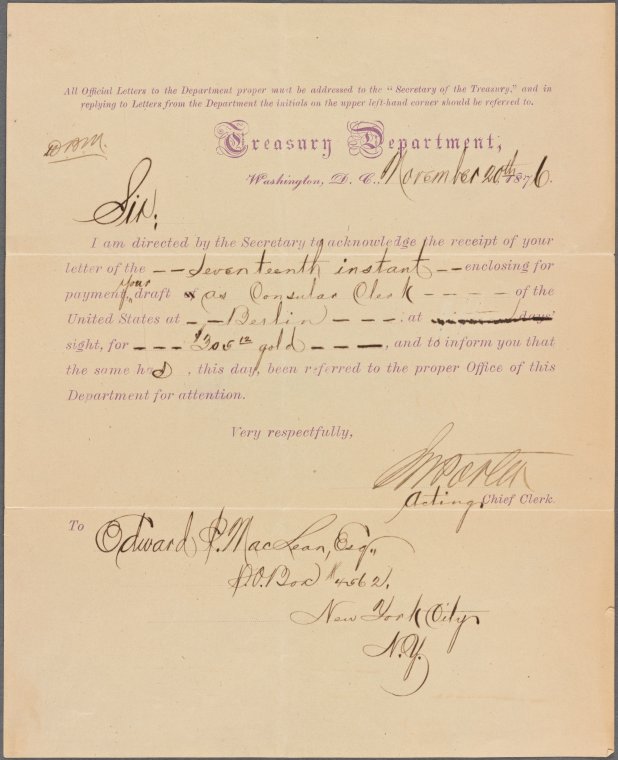 All Official Letters to the Department proper must be addressed to the "Secretary of the Treasury," and in
replying to Letters from the Department the initials on the upper left-hand corner should be referred to.
Treasury Department,
Washington, D. C., November 20th 1876.
Sir:
I am directed by the Secretary to acknowledge the receipt of your
letter of the -- Seventeenth instant -- enclosing for
your
payment, draft as Consular Clerk ---- of the
United States at -- Berlin ---, at days'
sight, for --- $305 12 gold ---, and to inform you that
the same had, this day, been referred to the proper Office of this
Department for attention.
Very respectfully,
Acting Chief Clerk.
To Edward P. MacLean, Esq.,
P.O. Box # 4562,
New York City
N.Y.